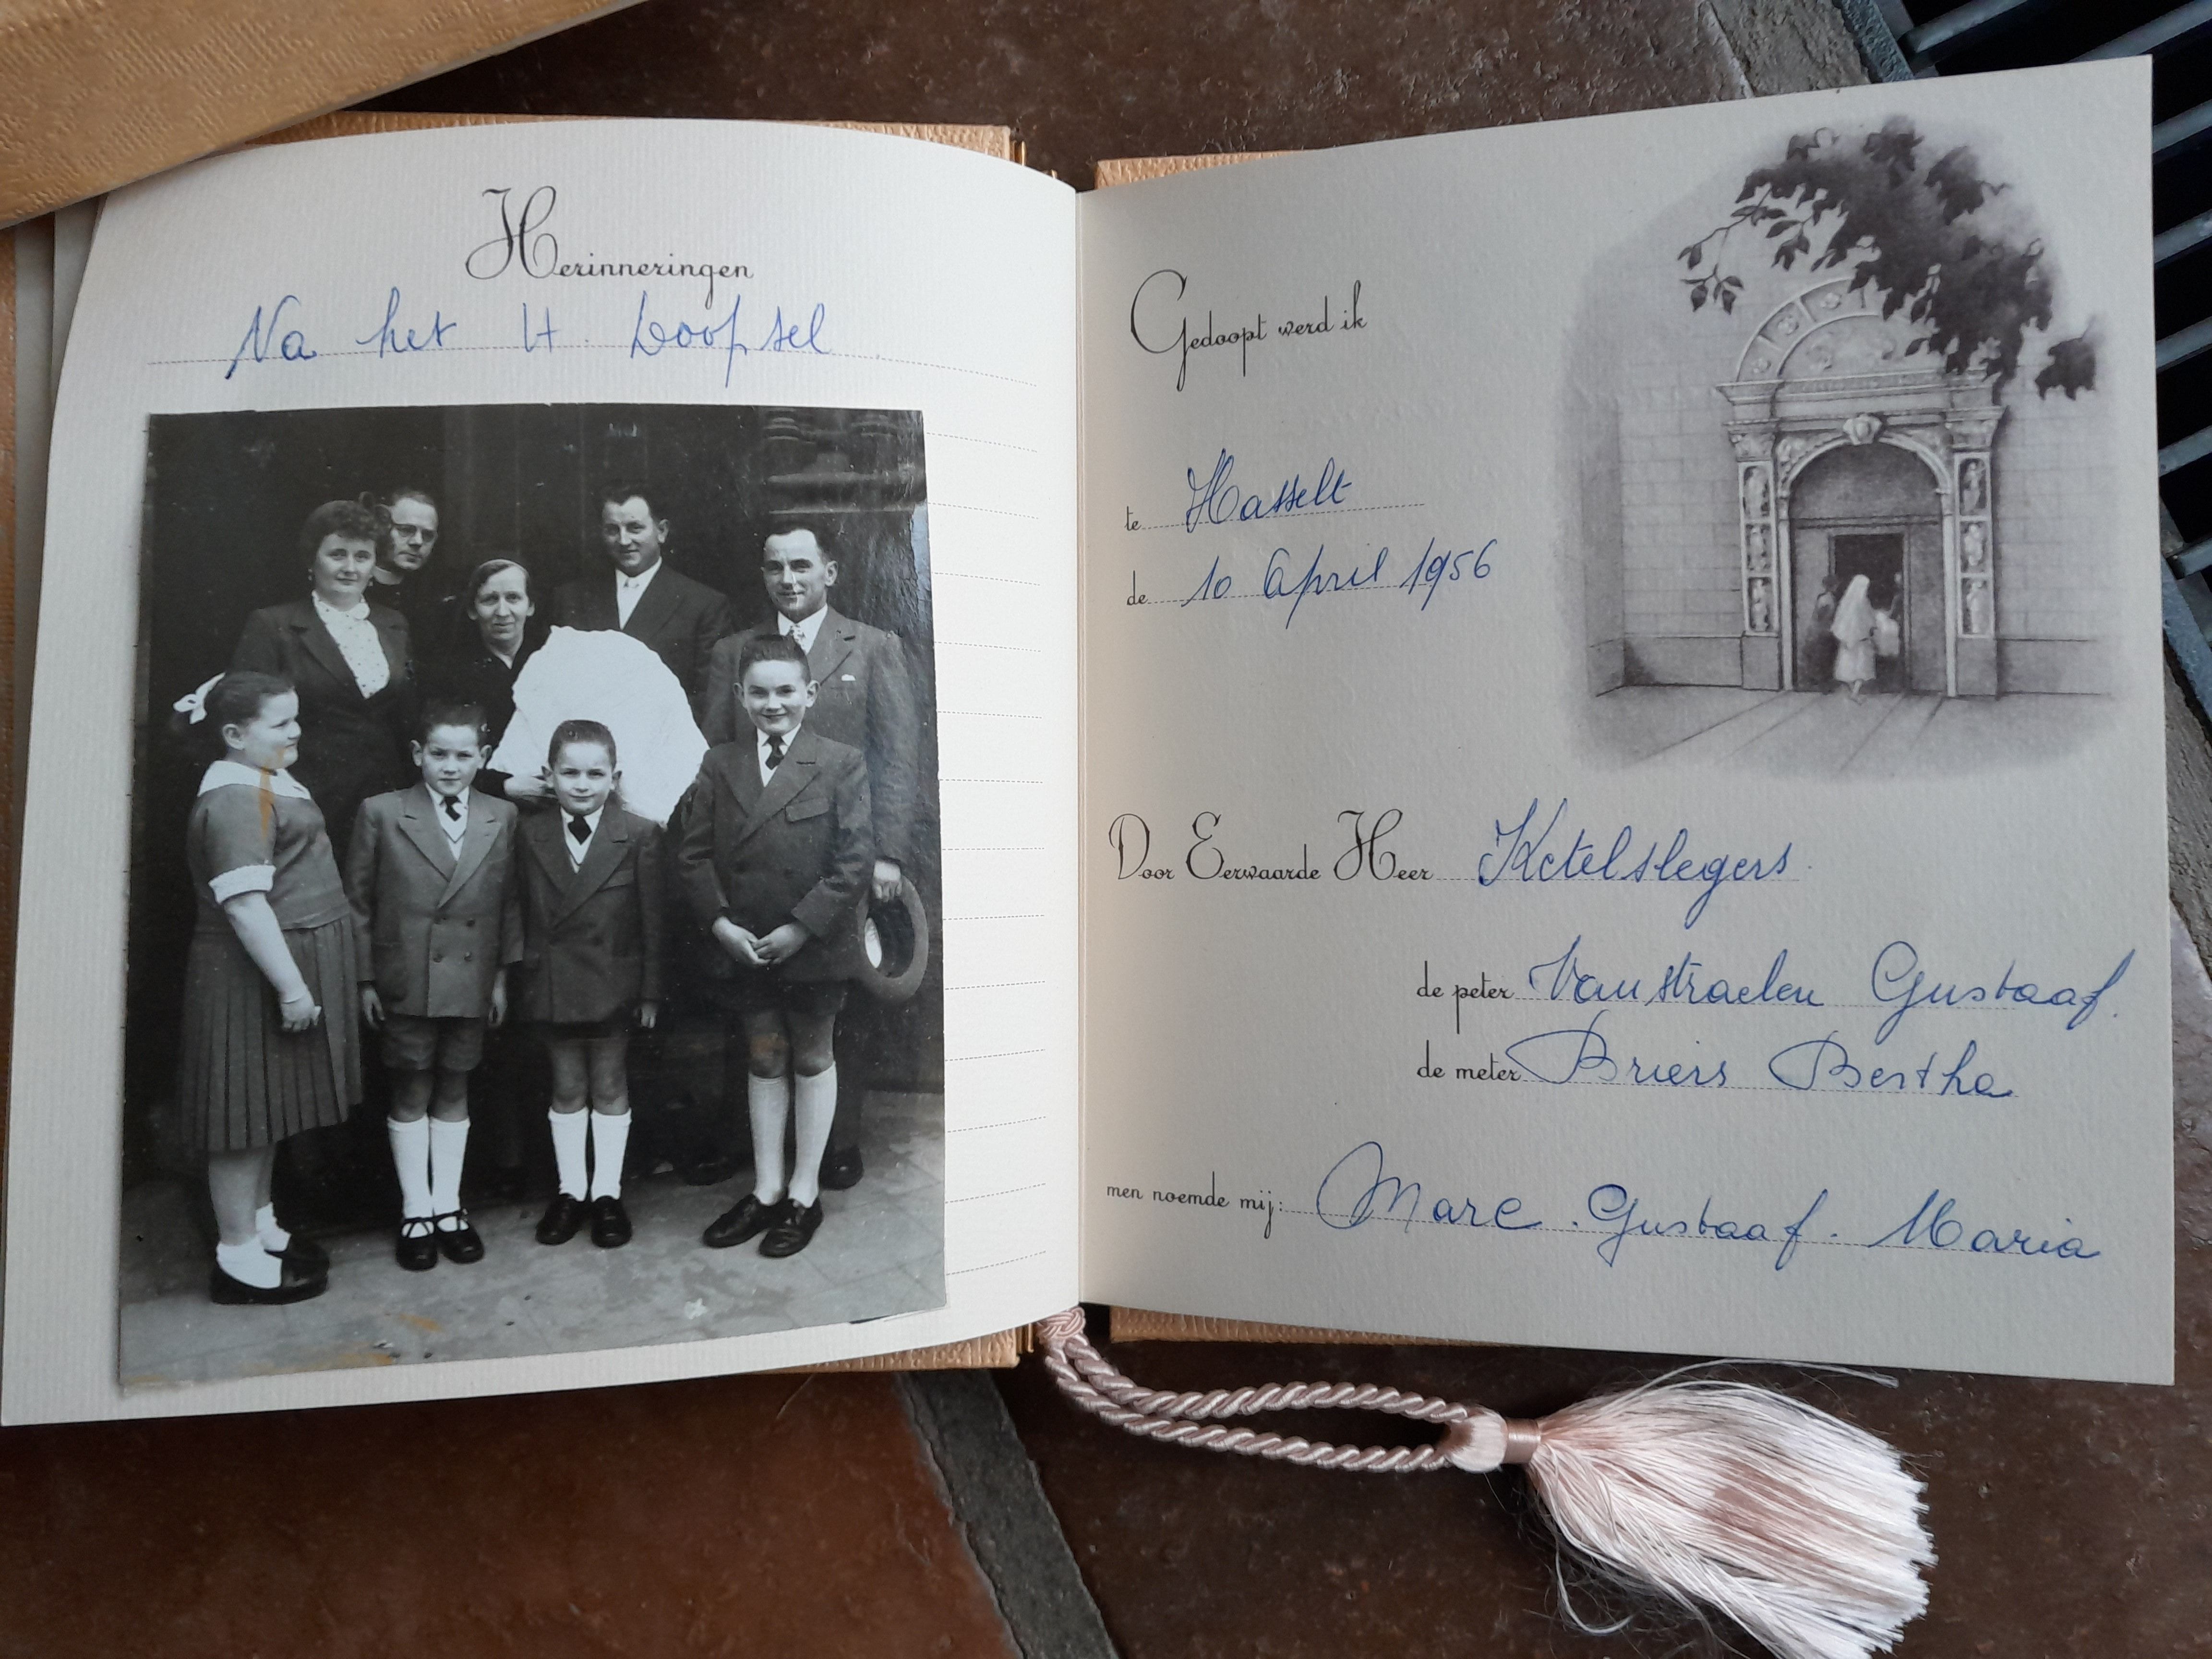 Herinneringen
Na het H. Doopsel
Gedoopt werd ik
te Hasselt
de 10 April 1956
Door Eerwaarde Heer Ketelslegers.
de peter Vanstraelen Gustaaf.
de meter Briers Bertha
men noemde mij: Marc. Gustaaf. Maria